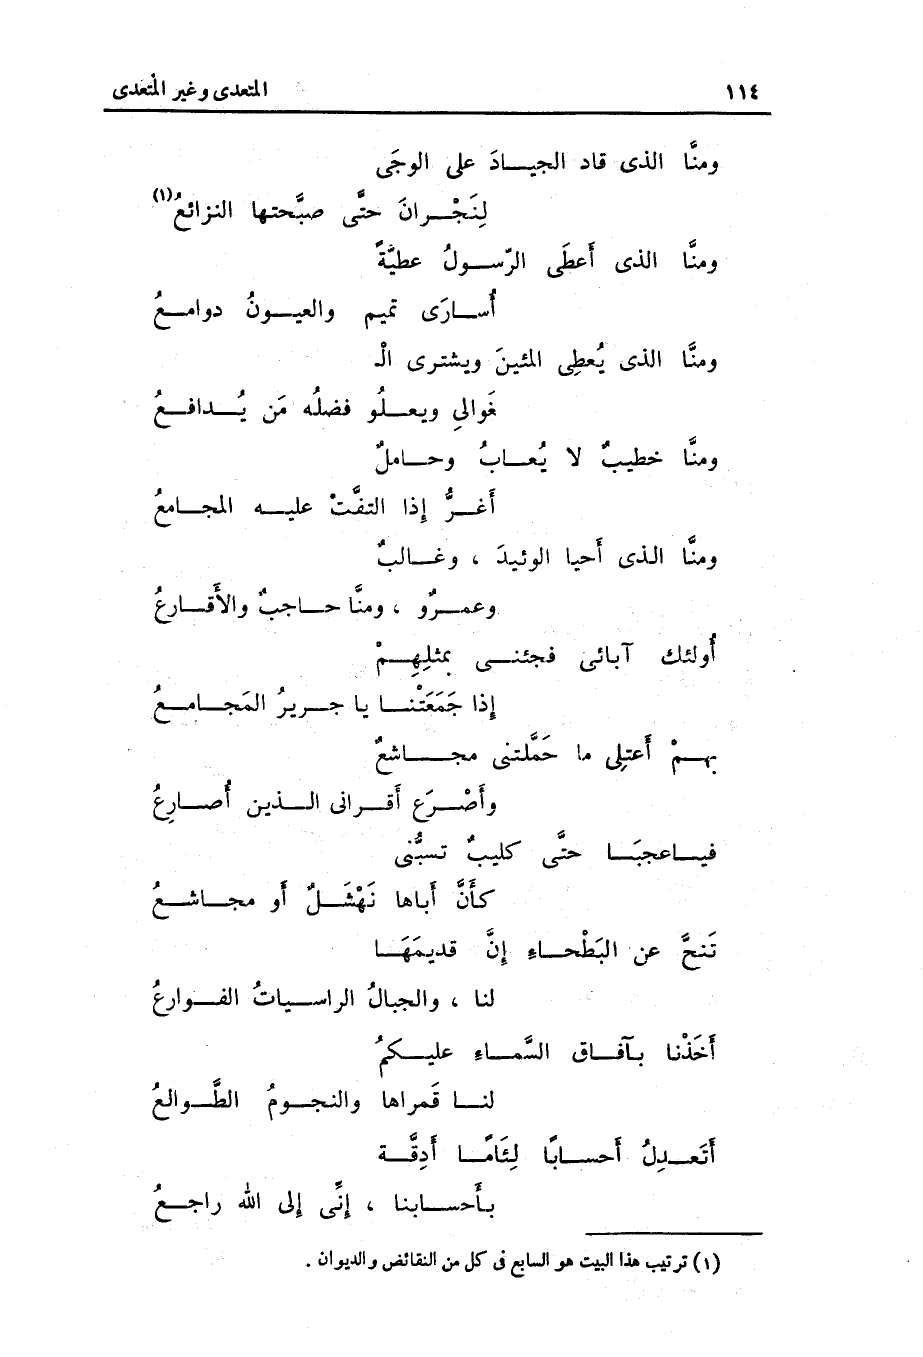 ١١٤ المتعدى وغير المتعدى
ومنَّا الذى قاد الجيادَ على الوجَى
لِنَجْرانَ حتَّى صبَّحتها النزائعُ(١)
ومنَّا الذى أَعطَى الرّسولُ عطيَّةً
أُسارَى تميم والعيونُ دوامعُ
ومنَّا الذى يُعطِى المئينَ ويشترى الْـ
غَوالِى ويعلُو فضلُه مَن يُدافعُ
ومنَّا خطيبٌ لا يُعابُ وحاملٌ
أَغرُّ إذا التفَّتْ عليه المجامعُ
ومنَّا الذى أَحيا الوئيدَ ، وغالبٌ
وعمرٌو ، ومنَّا حاجبٌ والأَقارعُ
أُولئك آبائى فجئنى بمثلِهِمْ
إذا جَمَعَتْنا يا جريرُ المَجامعُ
بهمْ أَعتلِى ما حَمَّلتنى مجاشعٌ
وأَصْرَع أَقرانى الذين أُصارِعُ
فياعجبَا حتَّى كليبٌ تسبُّنى
كأَنَّ أَباها نَهْشَلٌ أَو مجاشعُ
تَنحَّ عن البَطْحاءِ إنَّ قديمَهَا
لنا ، والجبالُ الراسياتُ الفوارعُ
أَخَذْنا بآفاق السَّماءِ عليكمُ
لنا قَمراها والنجومُ الطَّوالعُ
أَتَعدِلُ أَحسابًا لِئَامًا أَدِقَّة
بأَحسابنا ، إنِّى إلى الله راجعُ
(١) ترتيب هذا البيت هو السابع فى كل من النقائض والديوان .